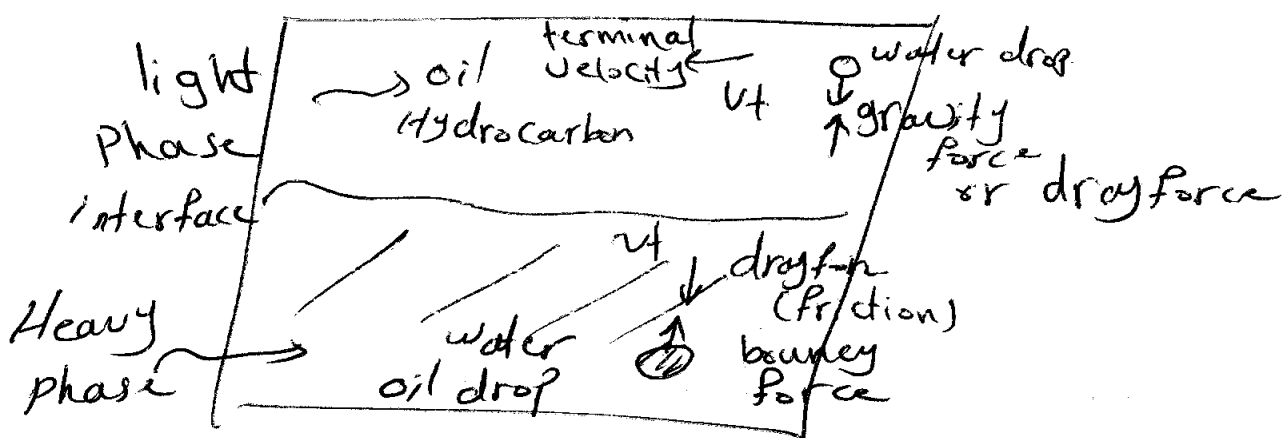 light
phase
interface
Heavy
phase
oil
Hydrocarbon
terminal
velocity
Vt
water drop
gravity
force
or drag force
Vt
drag
(friction)
bouney
force
water
oil drop